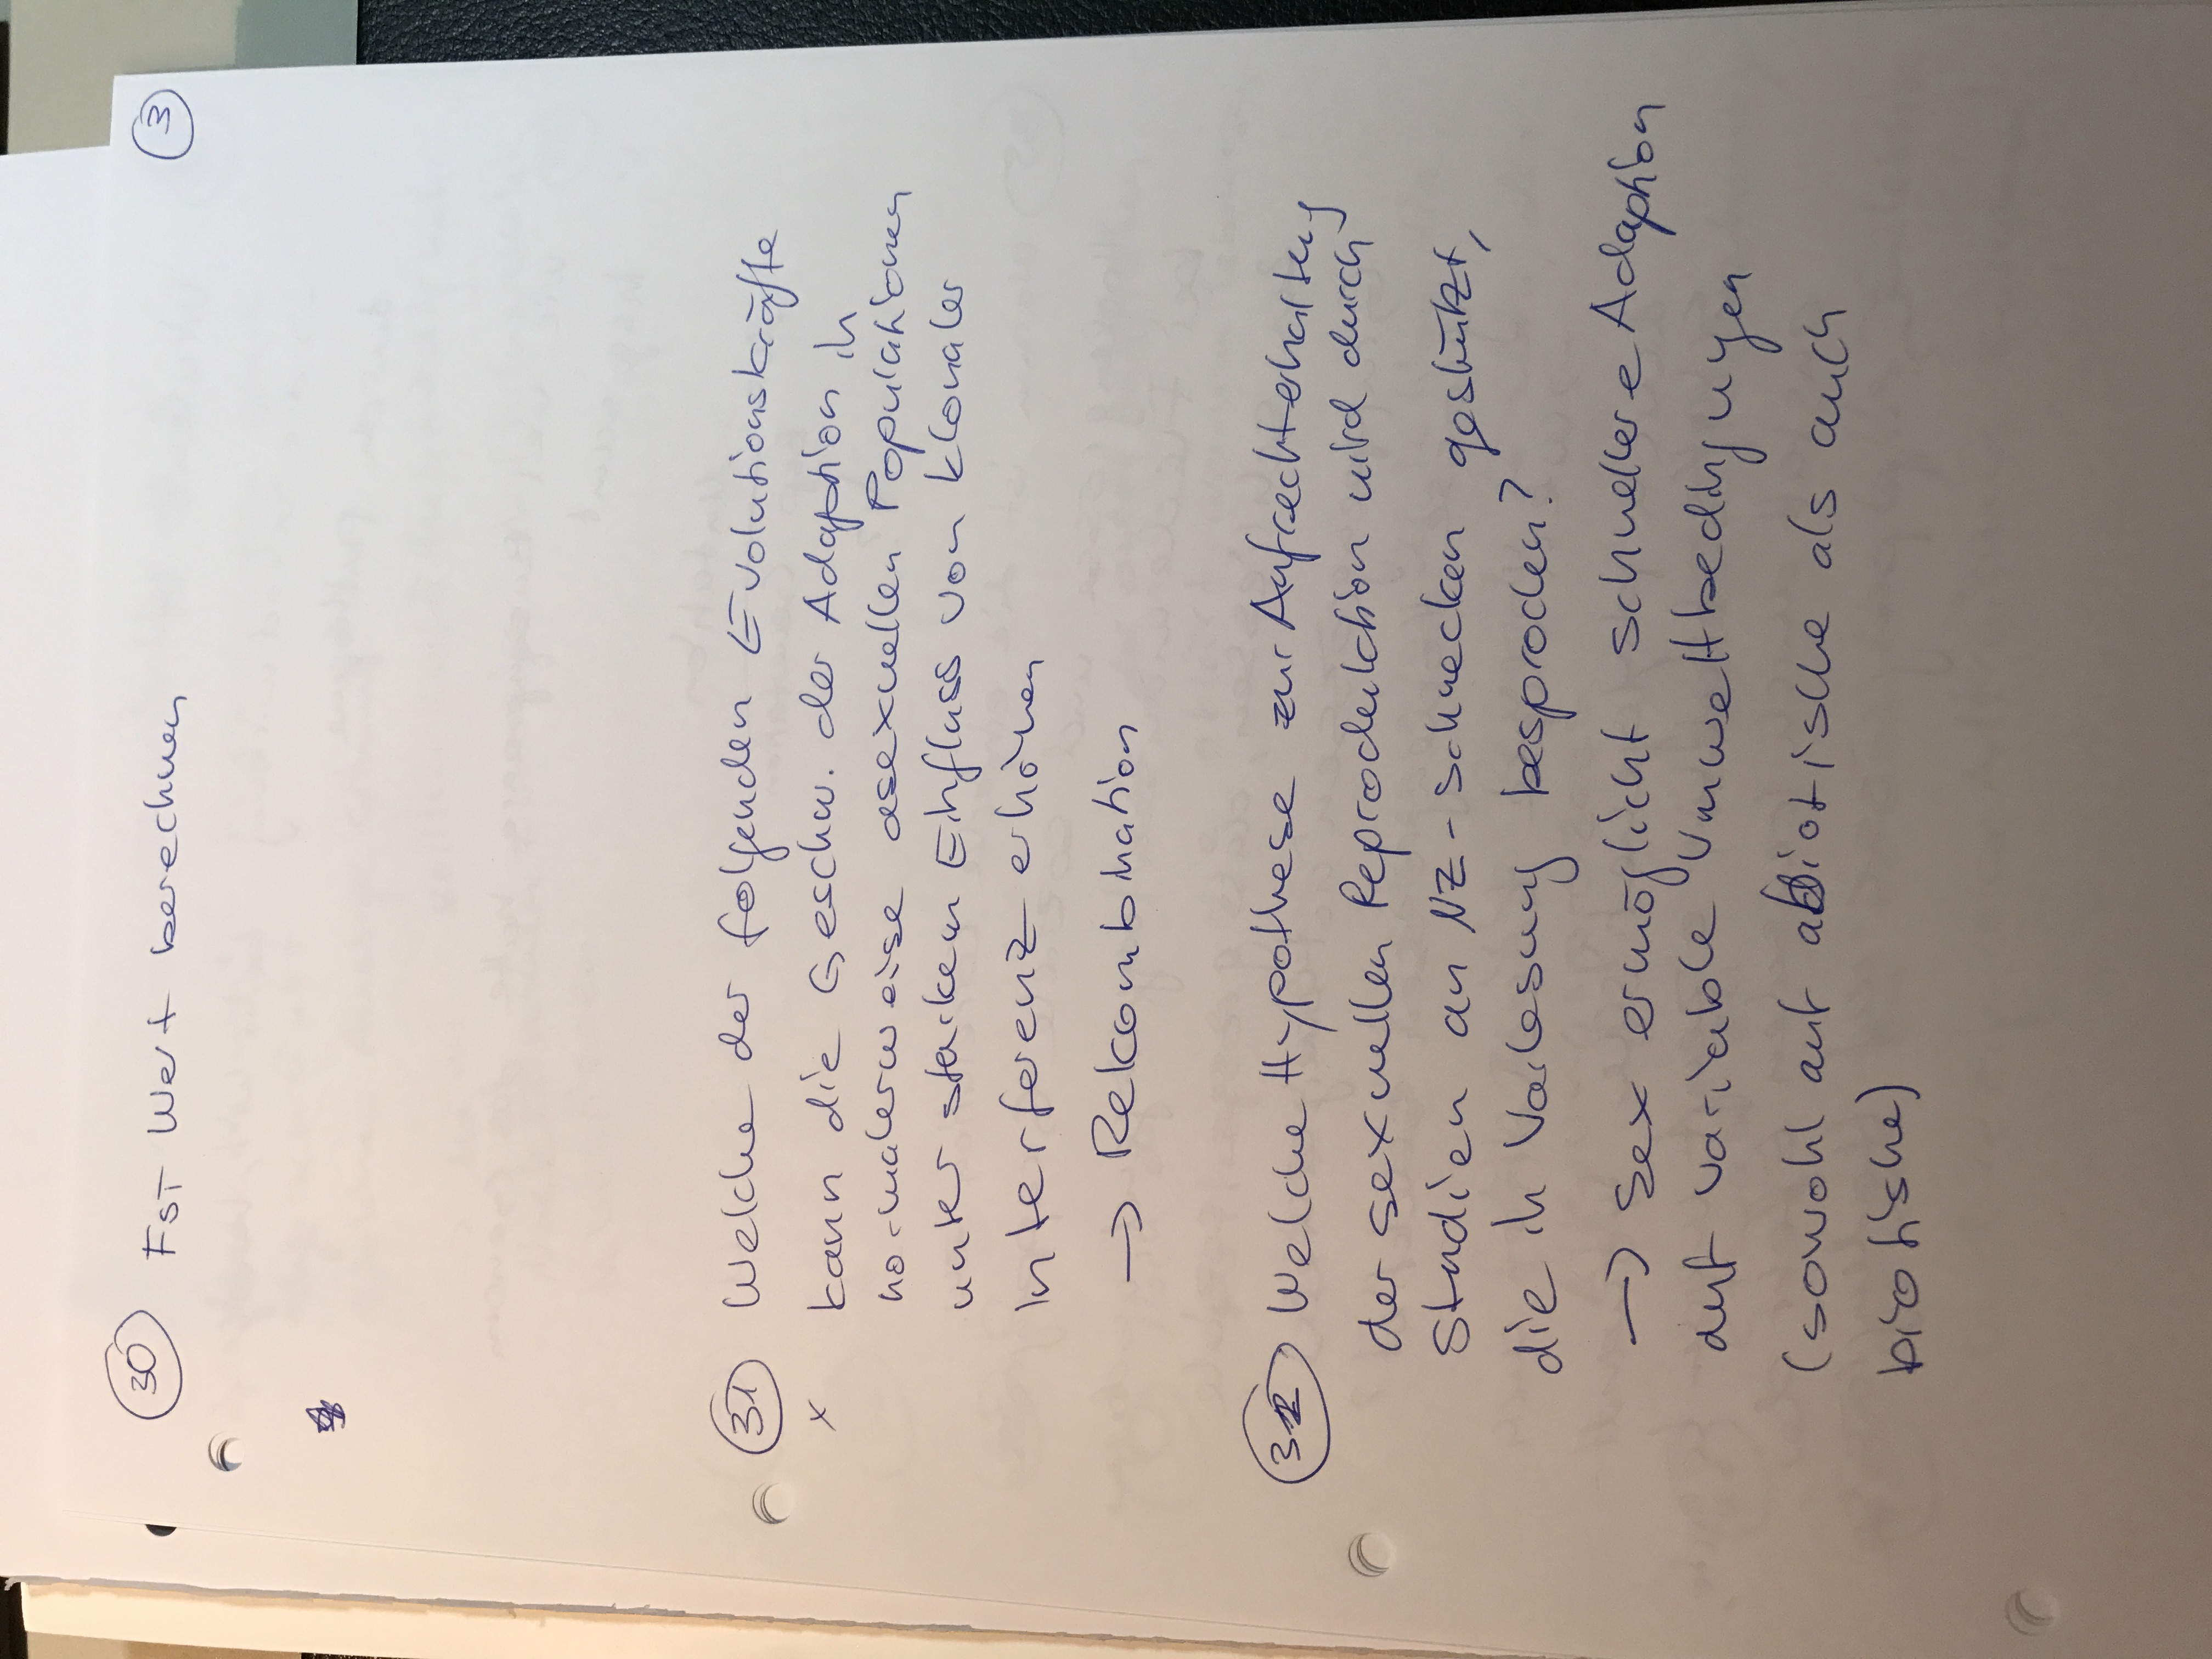 30 FST Wert berechnen 3
31 Welche der folgenden Evolutionskräfte
x kann die Geschw. der Adaption in
normalerweise asexuellen Populationen
unter starkem Einfluss von klonaler
Interferenz erhöhen
→ Rekombination
32 Welche Hypothese zur Aufrechterhaltung
der sexuellen Reproduktion wird durch
Studien an NZ-Schnecken gestützt,
die in Vorlesung besprochen?
→ Sex ermöglicht schnellere Adaption
auf variable Umweltbedingungen
(sowohl auf abiotische als auch
biotische)